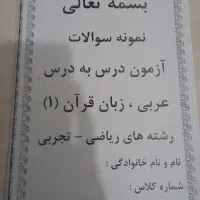 بسمه تعالی
نمونه سوالات
آزمون درس به درس
عربی ، زبان قرآن (۱)
رشته های ریاضی - تجربی
نام و نام خانوادگی :
شماره کلاس :